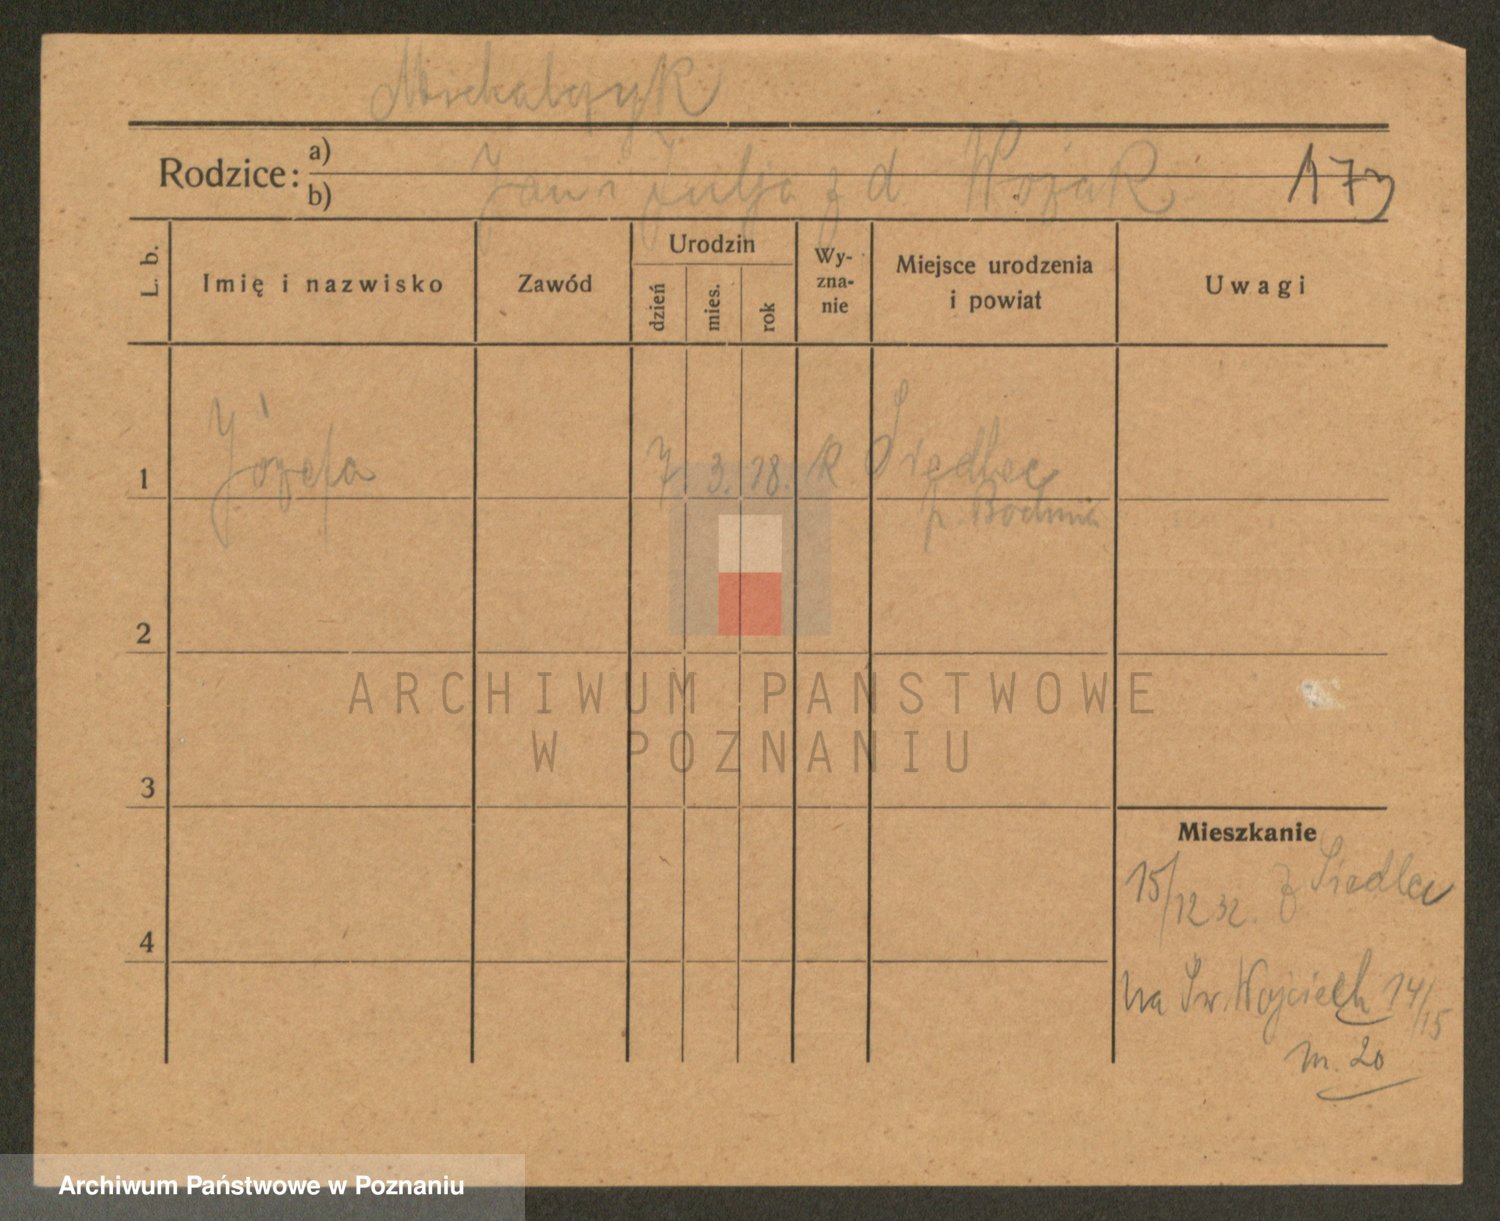 Michalczyk
Rodzice: a)
b)
Jan i Julja z d. Wojak
173
L. b.
Imię i nazwisko
Zawód
Urodzin
dzień
mies.
rok
Wy-
zna-
nie
Miejsce urodzenia
i powiat
Uwagi
1
Józefa
7. 3. 18.
R.
Siedlec
p. Bochnia
2
3
4
Mieszkanie
15/12 32. z Siedlec
na Św. Wojciech 14/15
m. 20
ARCHIWUM PAŃSTWOWE
W POZNANIU
Archiwum Państwowe w Poznaniu